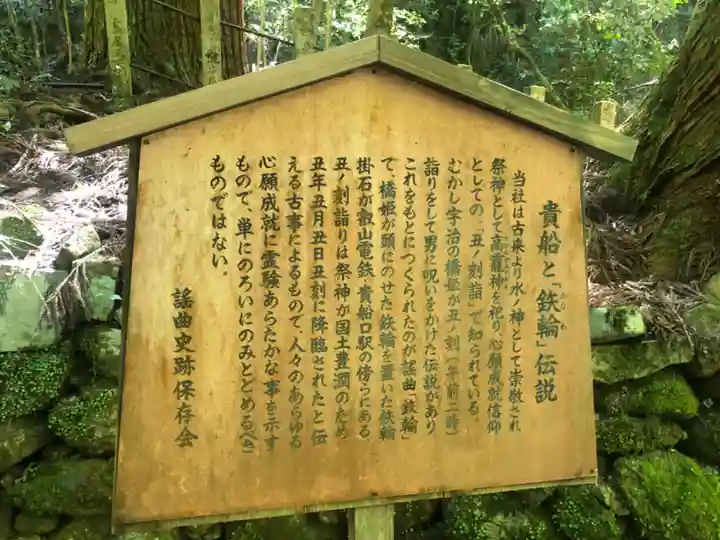 貴船と「鉄輪」伝説
かなわ
当社は古来より水ノ神として崇敬され
祭神として高龗神を祀り、心願成就信仰
としての「丑ノ刻詣」で知られている。
むかし宇治の橋姫が丑ノ刻(午前二時)
詣りをして男に呪いをかけた伝説があり
これをもとにつくられたのが謡曲「鉄輪」
で、橋姫が頭にのせた鉄輪を置いた鉄輪
掛石が叡山電鉄・貴船口駅の傍らにある
丑ノ刻詣りは祭神が国土豊潤のため
丑年丑月丑日丑刻に降臨されたと伝
える古事によるもので、人々のあらゆる
心願成就に霊験あらたかな事を示す
もので、単にのろいにのみとどめる(べき)
ものではない。
謡曲史跡保存会